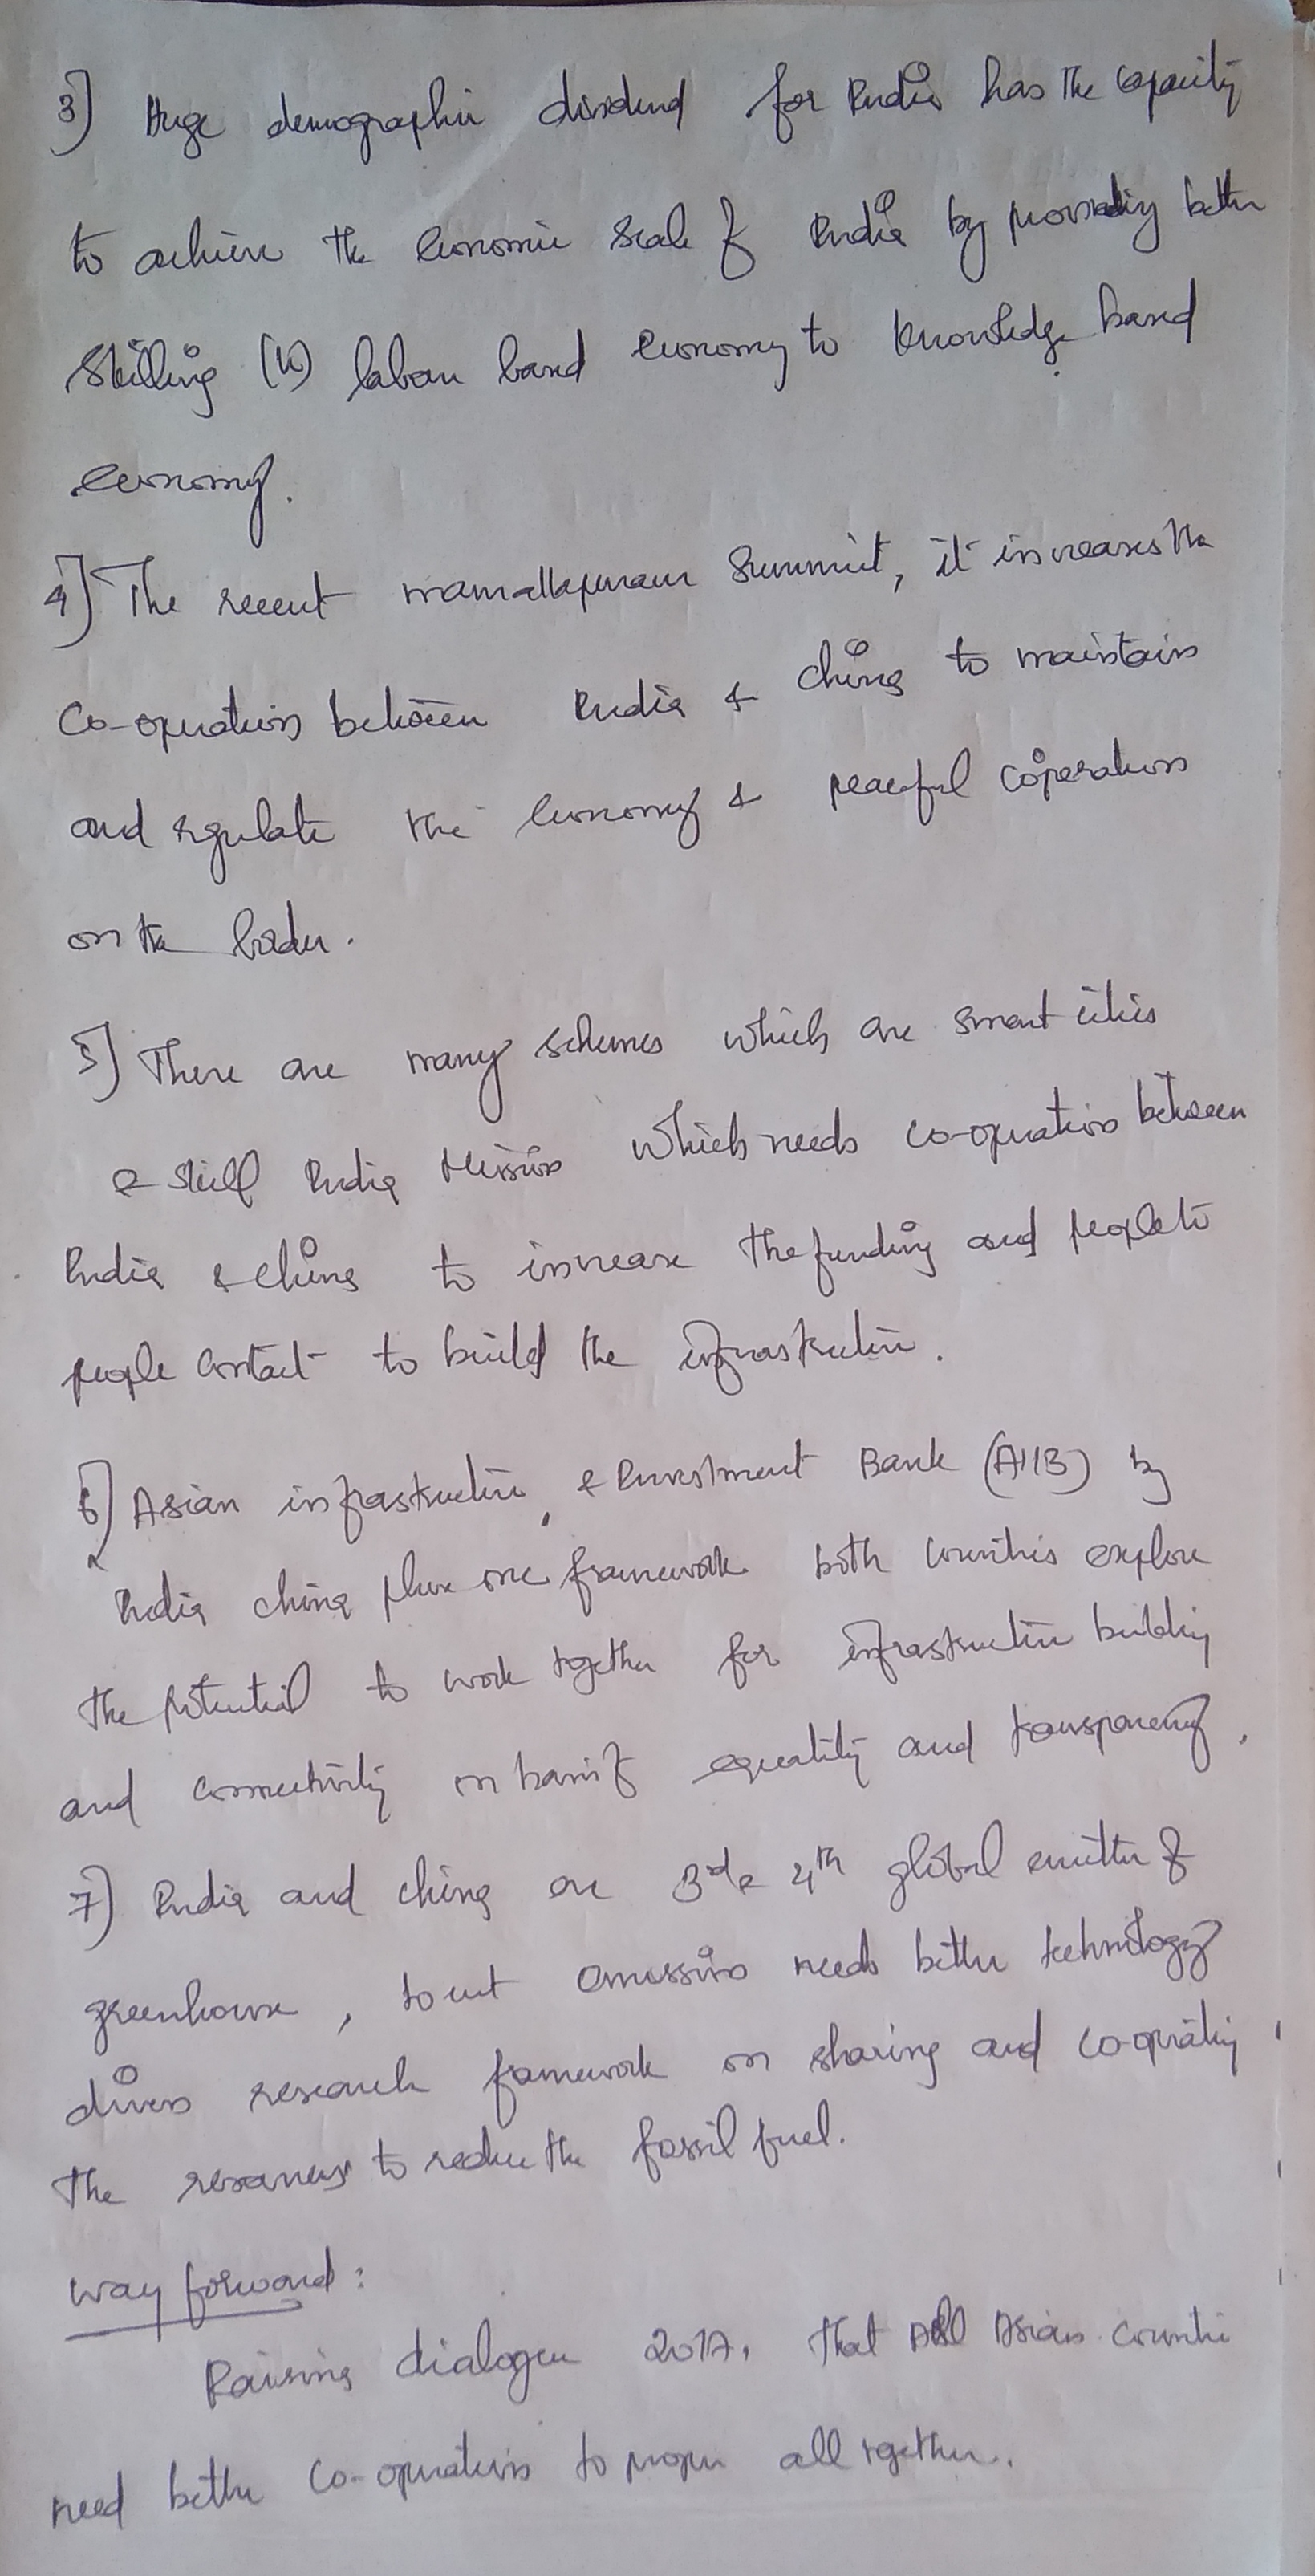 3] Huge demographic dividend for India has the capacity
to achieve the economic scale of India by providing better
skilling (or) labour based economy to knowledge based
economy.
4] The recent mamallapuram Summit, it increases the
Co-operation between India & China to maintain
and regulate the economy & peaceful coperation
on the border.
5] There are many schemes which are smart cities
& Skill India Mission which needs co-operation between
India & China to increase the funding and people to
people contact to build the infrastructure.
6] Asian infrastructure & Investment Bank (AIIB) by
India China plus one framework both countries explore
the potential to work together for infrastructure building
and connectivity on basis of equality and transparency.
7) India and China are 3rd & 4th global emitter of
greenhouse, to cut emission needs better technology
driven research framework on sharing and co-operating
the resources to reduce the fossil fuel.
Way forward:
Raising dialogue 2017, that All Asian Countrie
need better Co-operation to prosper all together.